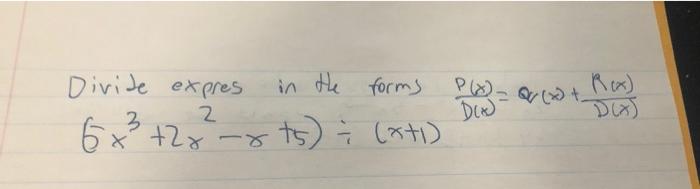 Divide expres in the forms P(x)/D(x) = Q(x) + R(x)/D(x)
(5x³ + 2x² - x + 5) ÷ (x+1)